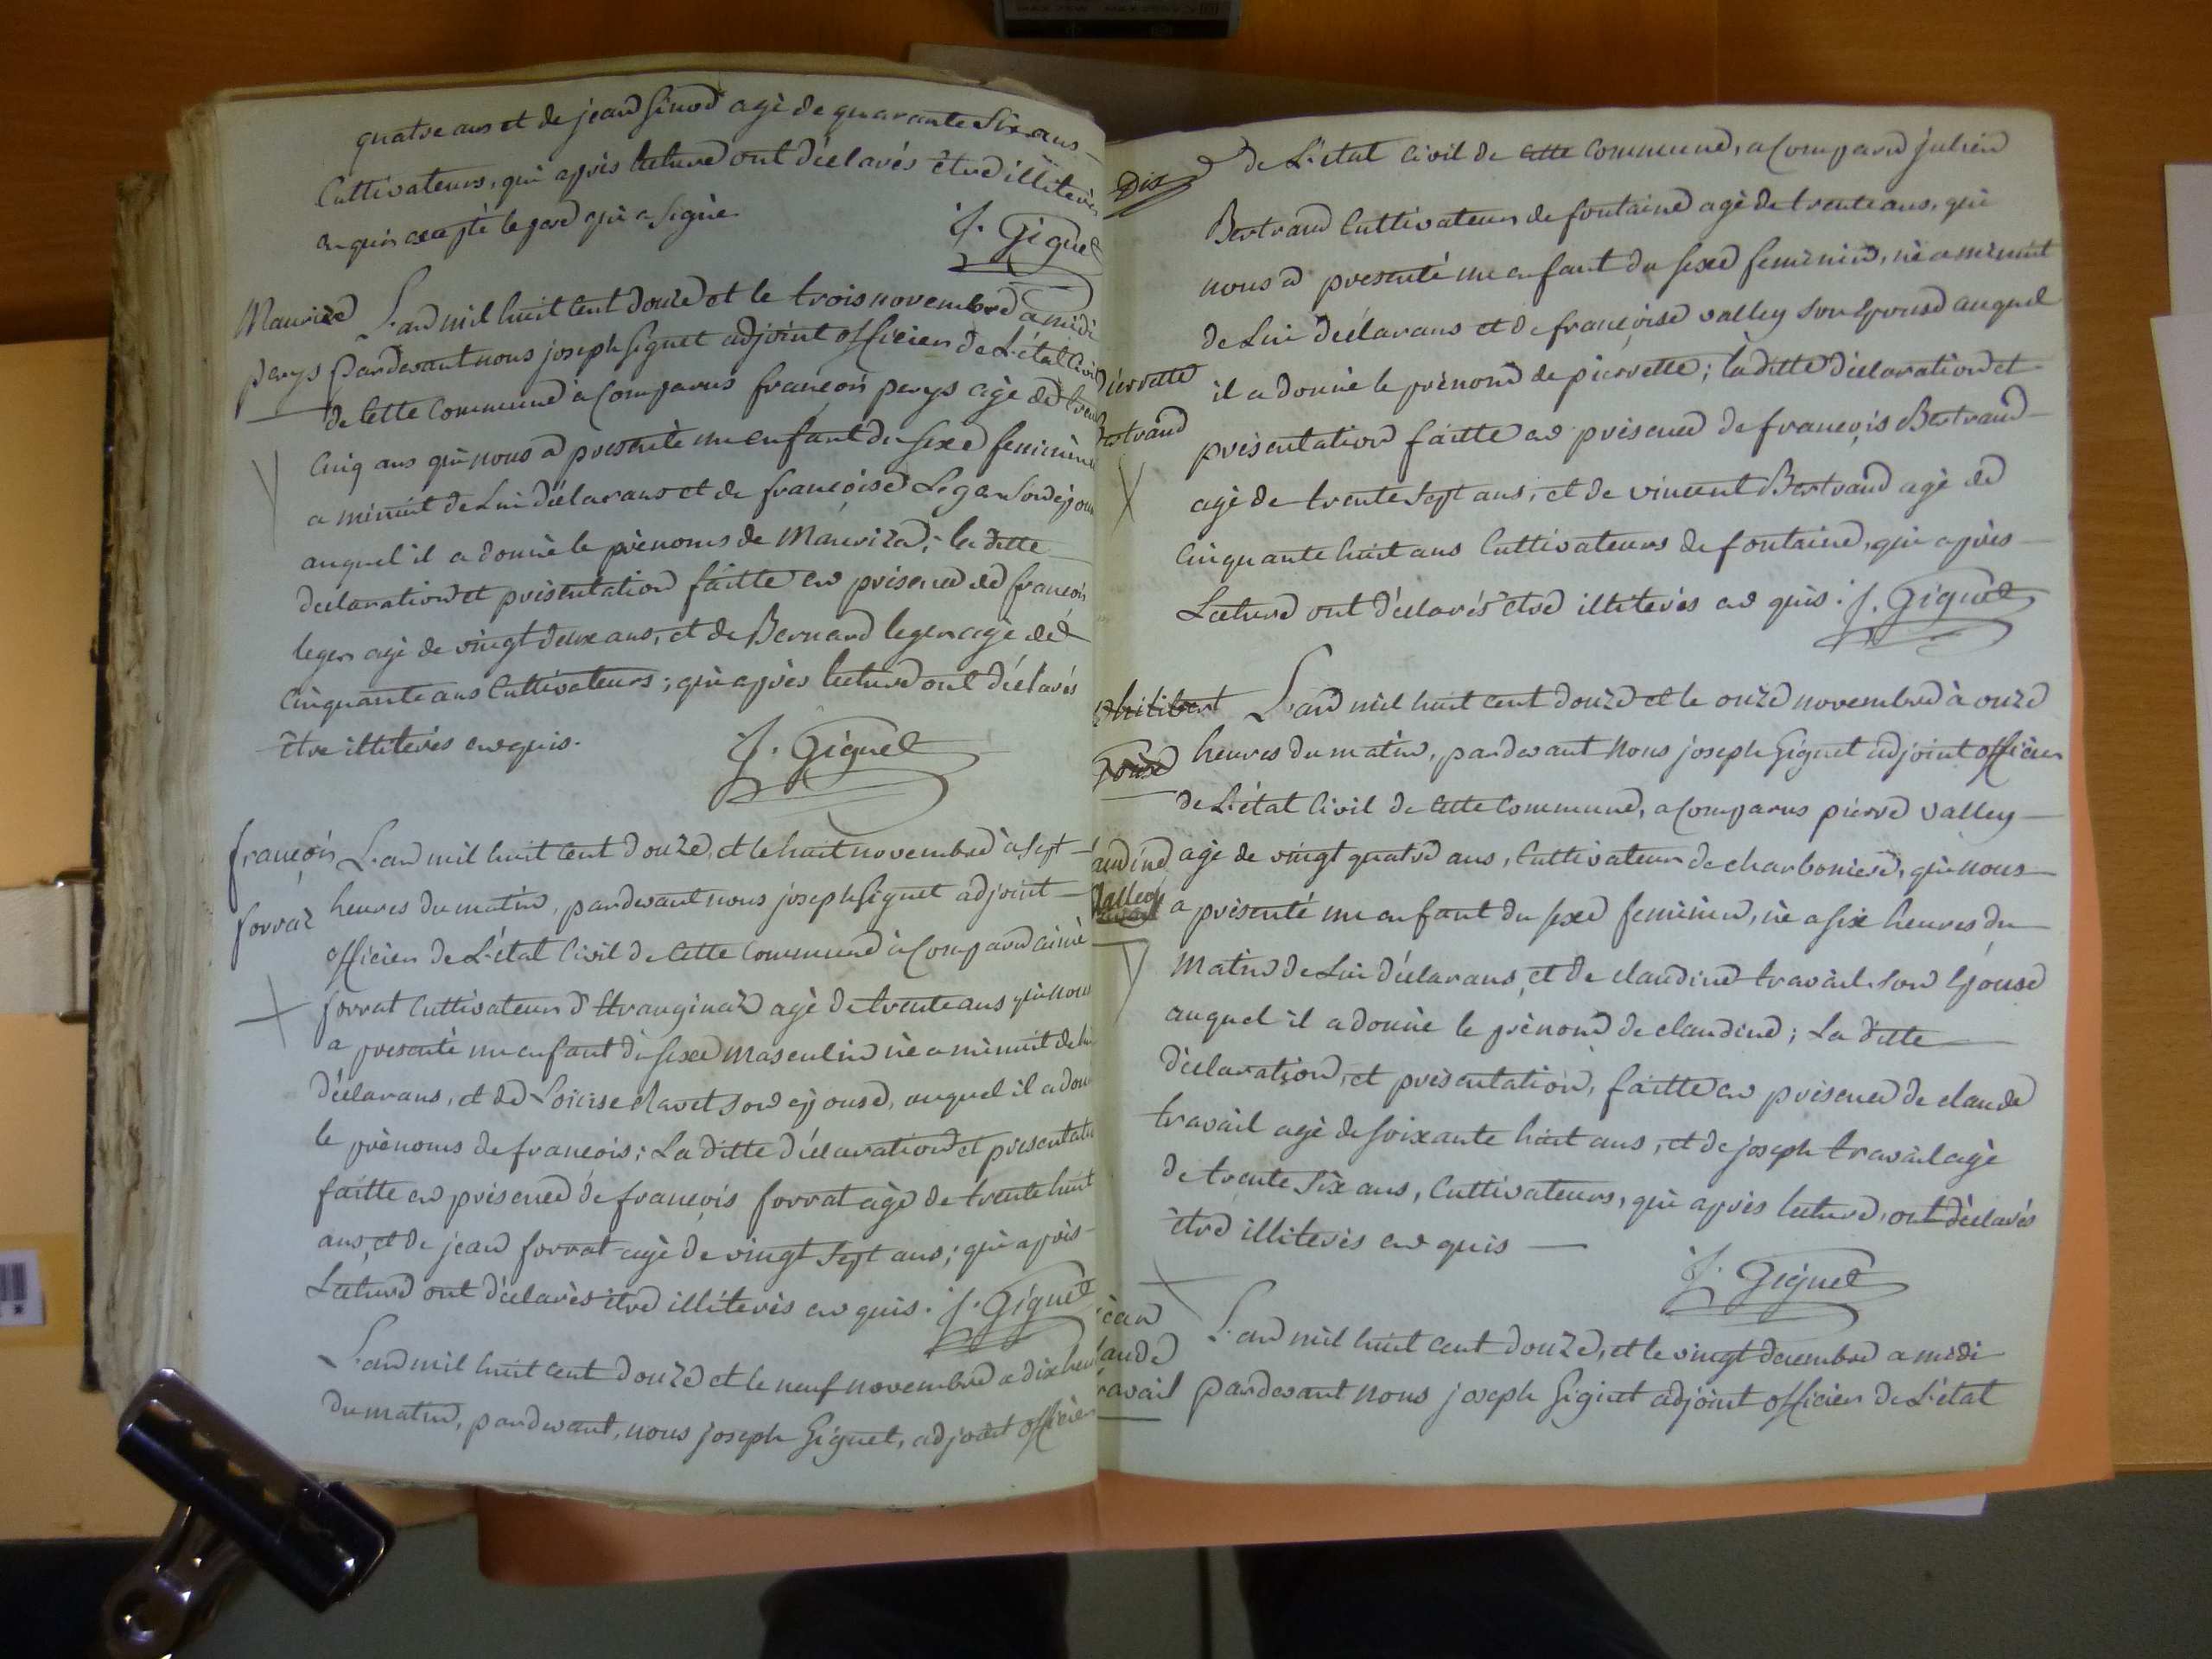 quatre ans et de jean Simod agè de quarante Six ans
Cultivateurs, qui après lecture ont déclarés être illiterés
enquis excepté le qui a signé.
J. Giguet
Maurize
perys
L'an mil huit cent douze et le trois novembre à midi
pardevant nous joseph Giguet adjoint officier de L'état Civil
de Cette Commune à Comparus françois perys agè de trente
Cinq ans qui nous a presentè un enfant du sexe feminin
a minuit de Lui déclarans et de françoise Leger son épouse
auquel il a donnè le prènoms de Mauriza; la ditte
declaration et présentation faitte en présence de françois
leger agè de vingt deux ans, et de Bernard leger agè de
Cinquante ans Cultivateurs; qui après lecture ont déclarés
être illiterés enquis.
J. Giguet
françois
forraz
L'an mil huit cent douze, et le huit novembre à sept
heures du matin, pardevant nous joseph Giguet adjoint
officier de L'état Civil de Cette Commune à Comparu aimè
forrat Cultivateur d'Etranginaz agè de trente ans qui nous
a presentè un enfant du sexe masculin né a minuit de lui
déclarans, et de Loüise chavet son epouse, auquel il a donné
le prènoms de françois; La ditte déclaration et présentation
faitte en présence de françois forrat agè de trente huit
ans, et de jean forrat agè de vingt Sept ans; qui après
Lecture ont déclarès être illiterés en quis. J. Giguet
L'an mil huit cent douze et le neuf novembre a dix heures
du matin, pardevant, nous joseph Giguet, adjoint officier
Dix
de L'état Civil de Cette Commune, a Comparu julien
Bertrand Cultivateur de fontaine agè de trente ans, qui
nous a presenté un enfant du sexe feminin, né a minuit
de Lui déclarans et de françoise valley son Epouse auquel
pierrette
Bertrand
il a donnè le prènom de pierrette; la ditte déclaration et
présentation faitte en présence de françois Bertrand
agè de trente Sept ans, et de vincent Bertrand agè de
Cinquante huit ans Cultivateurs de fontaine, qui après
Lecture ont déclarés être illiterés en quis. J. Giguet
philibert
L'an mil huit cent douze et le onze novembre à onze
heures du matin, pardevant Nous joseph Giguet adjoint officier
de L'état Civil de Cette Commune, a Comparus pierre valley
claudine
Valley
agè de vingt quatre ans, Cultivateur de charboniere, qui nous
a présenté un enfant du sexe feminin, né a six heures du
Matin de Lui déclarans, et de claudine travail son Epouse
auquel il a donnè le prènom de claudine; La ditte
déclaration, et présentation, faitte en présence de claude
travail agè de soixante huit ans, et de joseph travail agè
de trente Six ans, Cultivateurs, qui après lecture, ont déclarés
être illiterés en quis
J. Giguet
jean
claude
travail
L'an mil huit cent douze, et le vingt decembre a midi
pardevant nous joseph Giguet adjoint officier de L'état